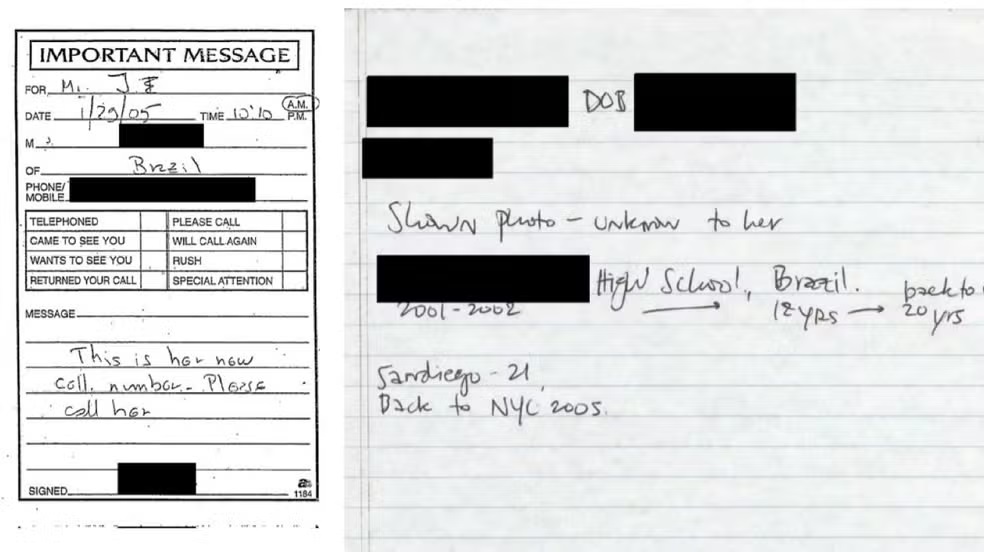 IMPORTANT MESSAGE
FOR Mr. JE
DATE 1/29/05 TIME 10:10 A.M. P.M.
M
OF Brazil
PHONE/
MOBILE
TELEPHONED PLEASE CALL
CAME TO SEE YOU WILL CALL AGAIN
WANTS TO SEE YOU RUSH
RETURNED YOUR CALL SPECIAL ATTENTION
MESSAGE
This is her new
cell. number. Please
call her
SIGNED
1184
DOB
Shown photo - unknown to her
High School, Brazil. back to
2001-2002 → 18 yrs → 20 yrs
Sandiego - 21
Back to NYC 2005.